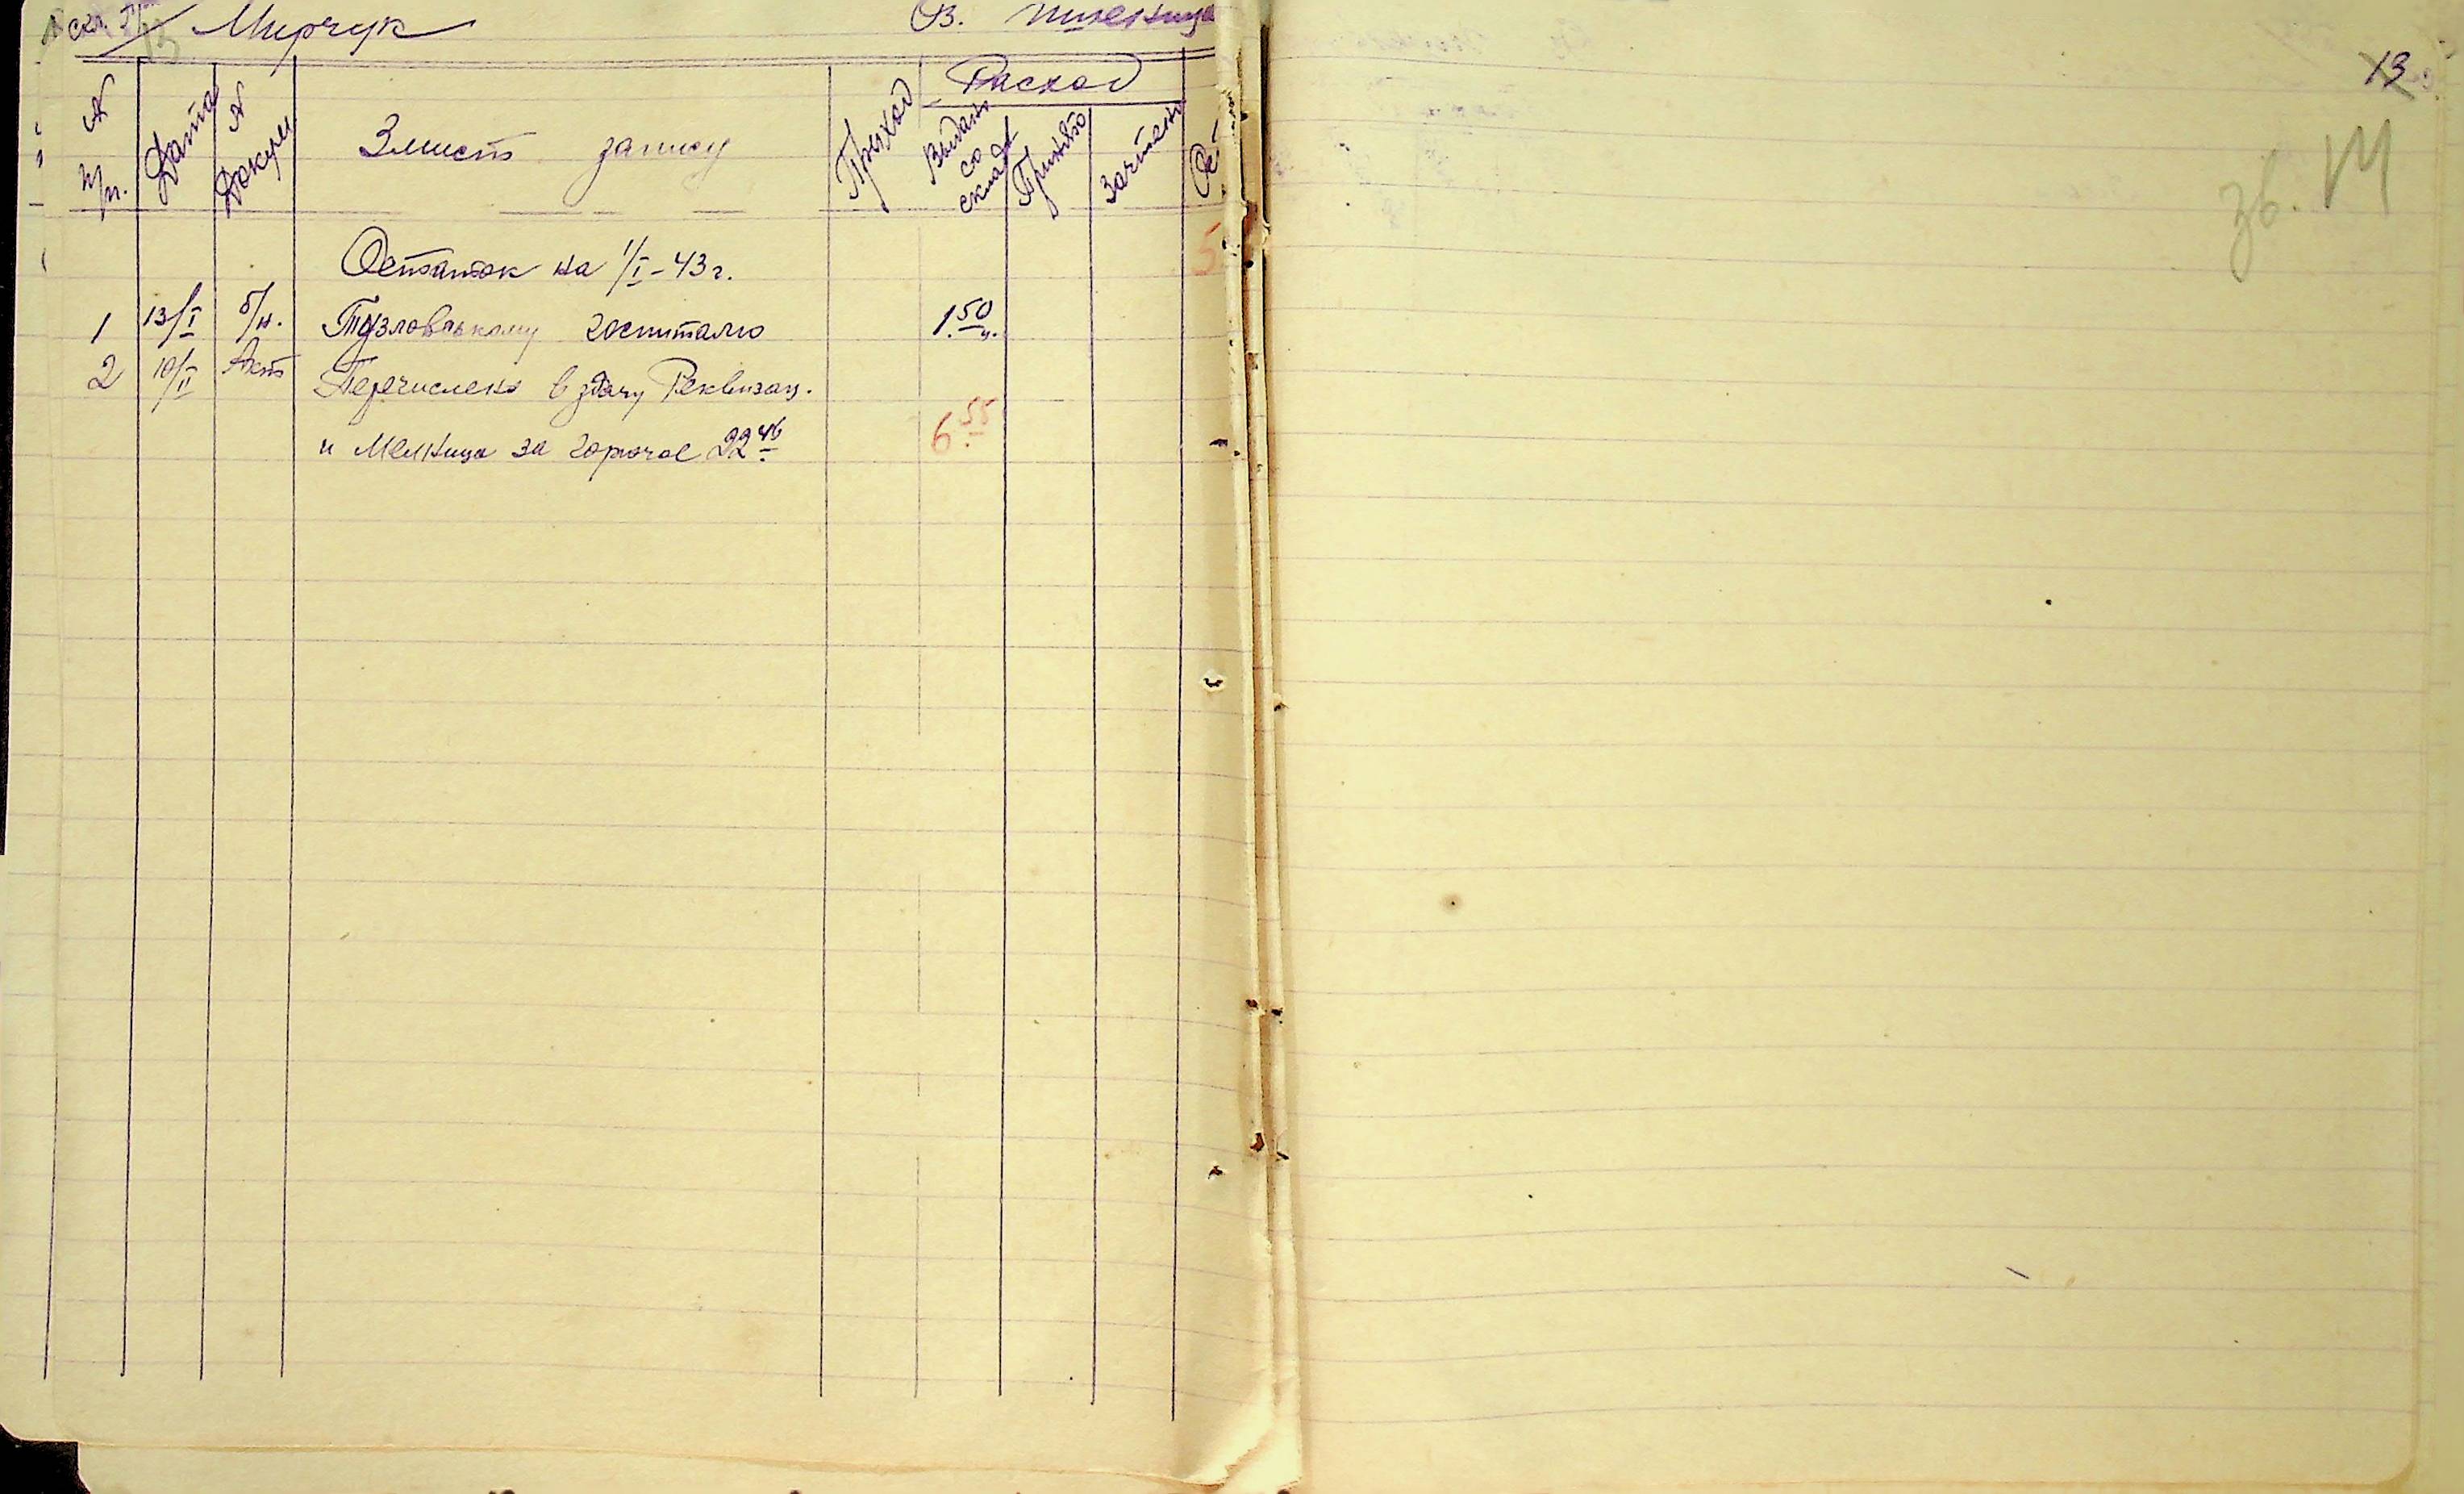 Мирчук Оз. пшениця
№ п/п. Дата № Докум Зміст запису Приход Расход
Выдано со склада Принято Зачтено Ос
Остаток на 1/I-43 г. 5
1 13/I б/н. Тузловському госпиталю 1.50 ц.
2 10/II Акт Перечислено в здачу Реквизац.
и Мельница за горючое 22.46 6.55
13
зв. М